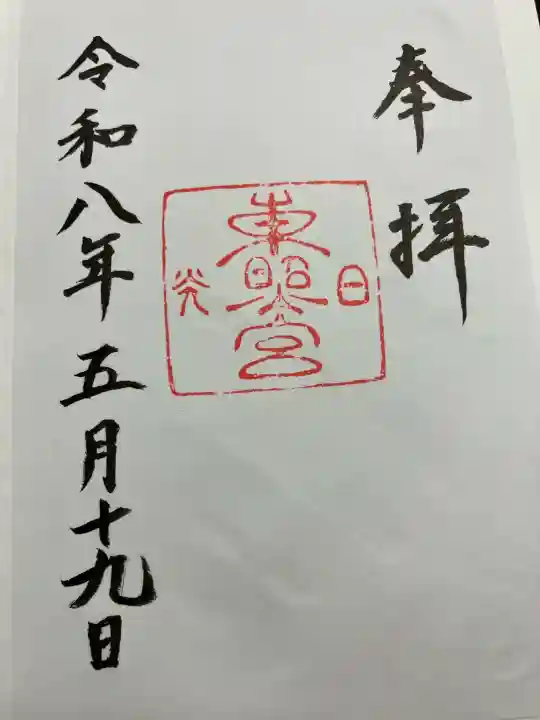 奉拝
日
東照宮
光
令和八年五月十九日